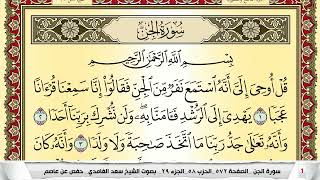 سُورَةُ الجِنِّ
بِسْمِ اللَّهِ الرَّحْمَٰنِ الرَّحِيمِ
قُلْ أُوحِيَ إِلَيَّ أَنَّهُ اسْتَمَعَ نَفَرٌ مِّنَ الْجِنِّ فَقَالُوا إِنَّا سَمِعْنَا قُرْءَانًا
عَجَبًا ١ يَهْدِي إِلَى الرُّشْدِ فَـَٔامَنَّا بِهِۦ وَلَن نُّشْرِكَ بِرَبِّنَا أَحَدًا ٢
وَأَنَّهُ تَعَٰلَىٰ جَدُّ رَبِّنَا مَا اتَّخَذَ صَٰحِبَةً وَلَا وَلَدًا ٣ وَأَنَّهُ كَانَ
سورة الجن _ الصفحة ٥٧٢_ الحزب ٥٨_ الجزء ٢٩ _ بصوت الشيخ سعد الغامدي _ حفص عن عاصم 1